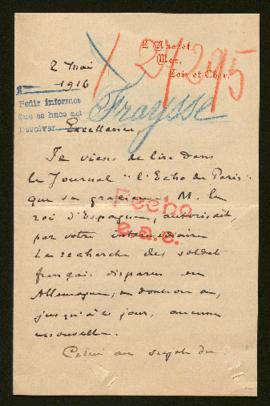 L'Archet,
Mer,
Loir et Cher.
1/2/295
2 Mai
1916
Pedir informes
Que se hace así
Devolver
Fraysse
Excellence
Je viens de lire dans
le Journal "l'Echo de Paris"
que sa gracieuse M. le
roi d'Espagne, autorisait,
par votre intermédiaire
la recherche des soldats
français disparus en
Allemagne, ne donnant,
jusqu'à ce jour, aucune
nouvelle.
Fecho
Celui au sujet du